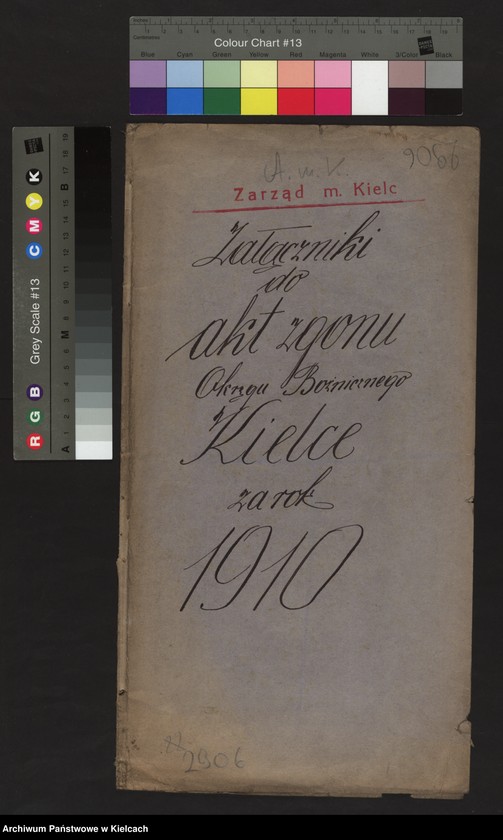 Colour Chart #13
Blue Cyan Green Yellow Red Magenta White 3/Color Black
Grey Scale #13
R G B
C M Y K
A M B
A. m. K.
9066
Zarząd m. Kielc
Załączniki
do
akt zgonu
Okręgu Bożnicznego
Kielce
za rok
1910
2906
Archiwum Państwowe w Kielcach